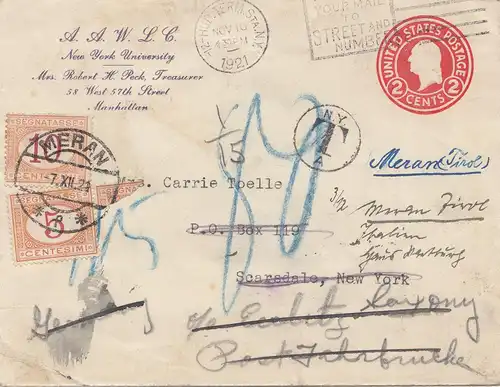 A. A. W. L. C.
New York University
Mrs. Robert H. Peck, Treasurer
58 West 57th Street
Manhattan
NOV 16
1921
N.Y.
YOUR MAIL
TO
STREET AND
NUMBER
UNITED STATES POSTAGE
2 2
CENTS
SEGNATASSE
10
CENTESIMI
MERAN
-7.XII.21
* 8 *
SEGNATASSE
5
CENTESIMI
N.Y.
T
A
15
Meran (Tirol)
s. Carrie Toelle
3/2 Meran Tirol
P.O. Box 119
Italien
Haus
Scarsdale, New York
Germany
c/o Saxony
Post